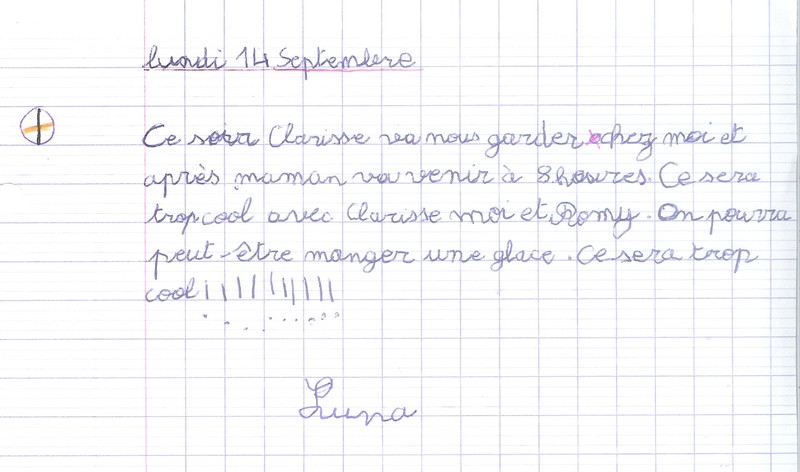 lundi 14 Septembre
Ce soir Clarisse va nous garder chez moi et
après maman va venir à 8 heures. Ce sera
trop cool avec Clarisse moi et Romy. On pourra
peut-être manger une glace. Ce sera trop
cool !!!!!!!!!!!
Luna